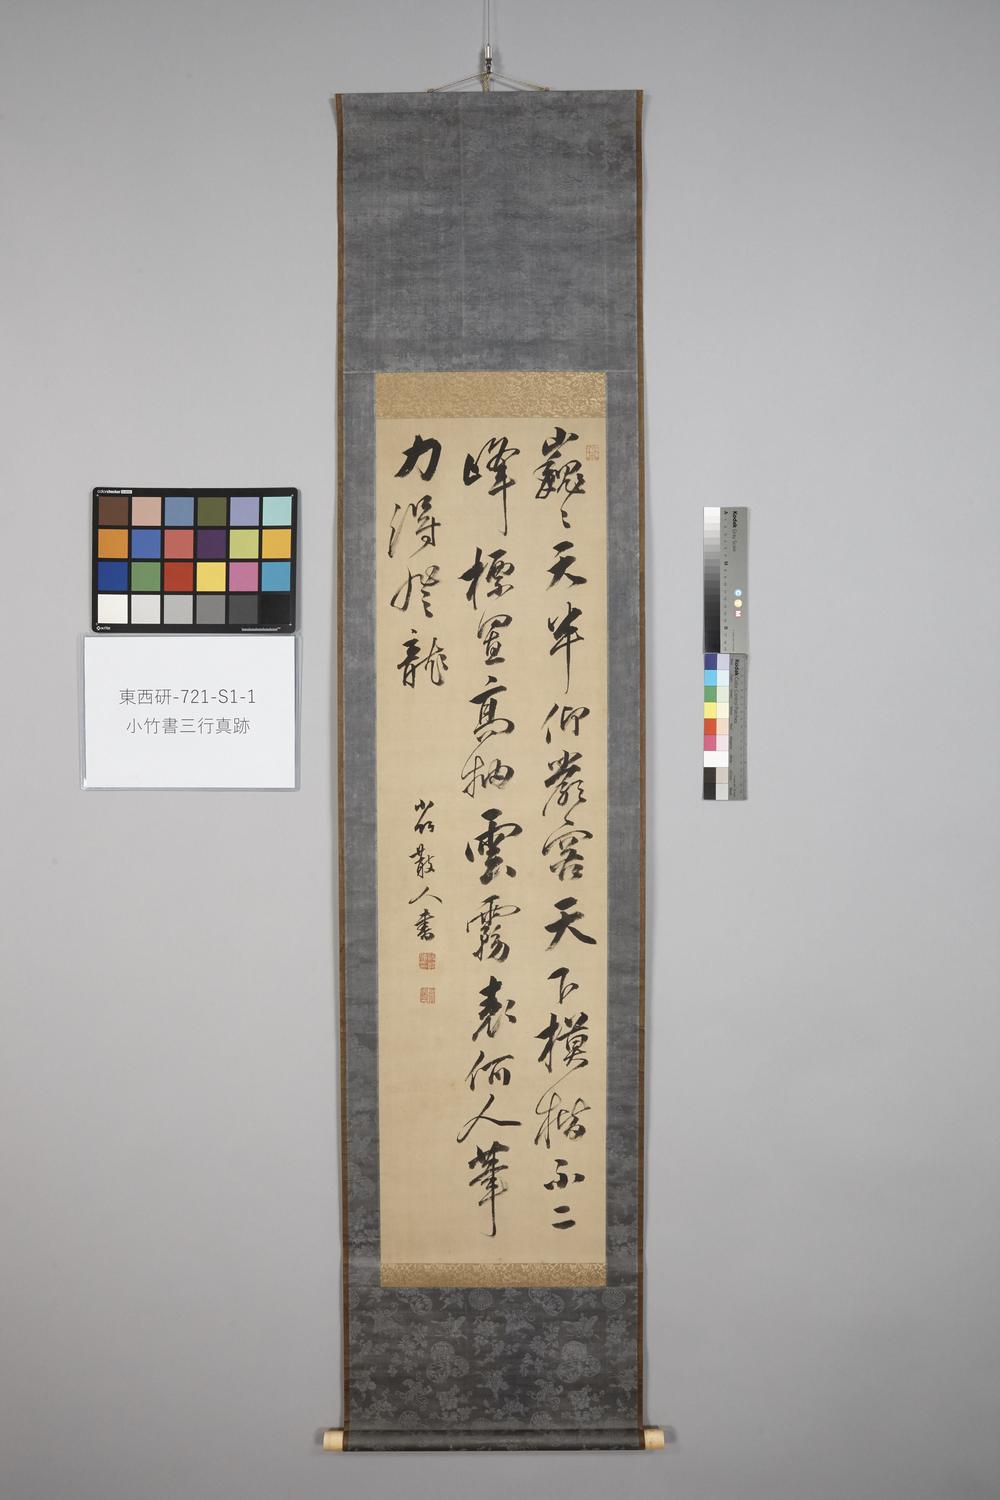 巍〻天半仰嚴容天下模楷不二
峰標置高抽雲霧表何人筆
力得登龍
小竹散人書
東西研-721-S1-1
小竹書三行真跡